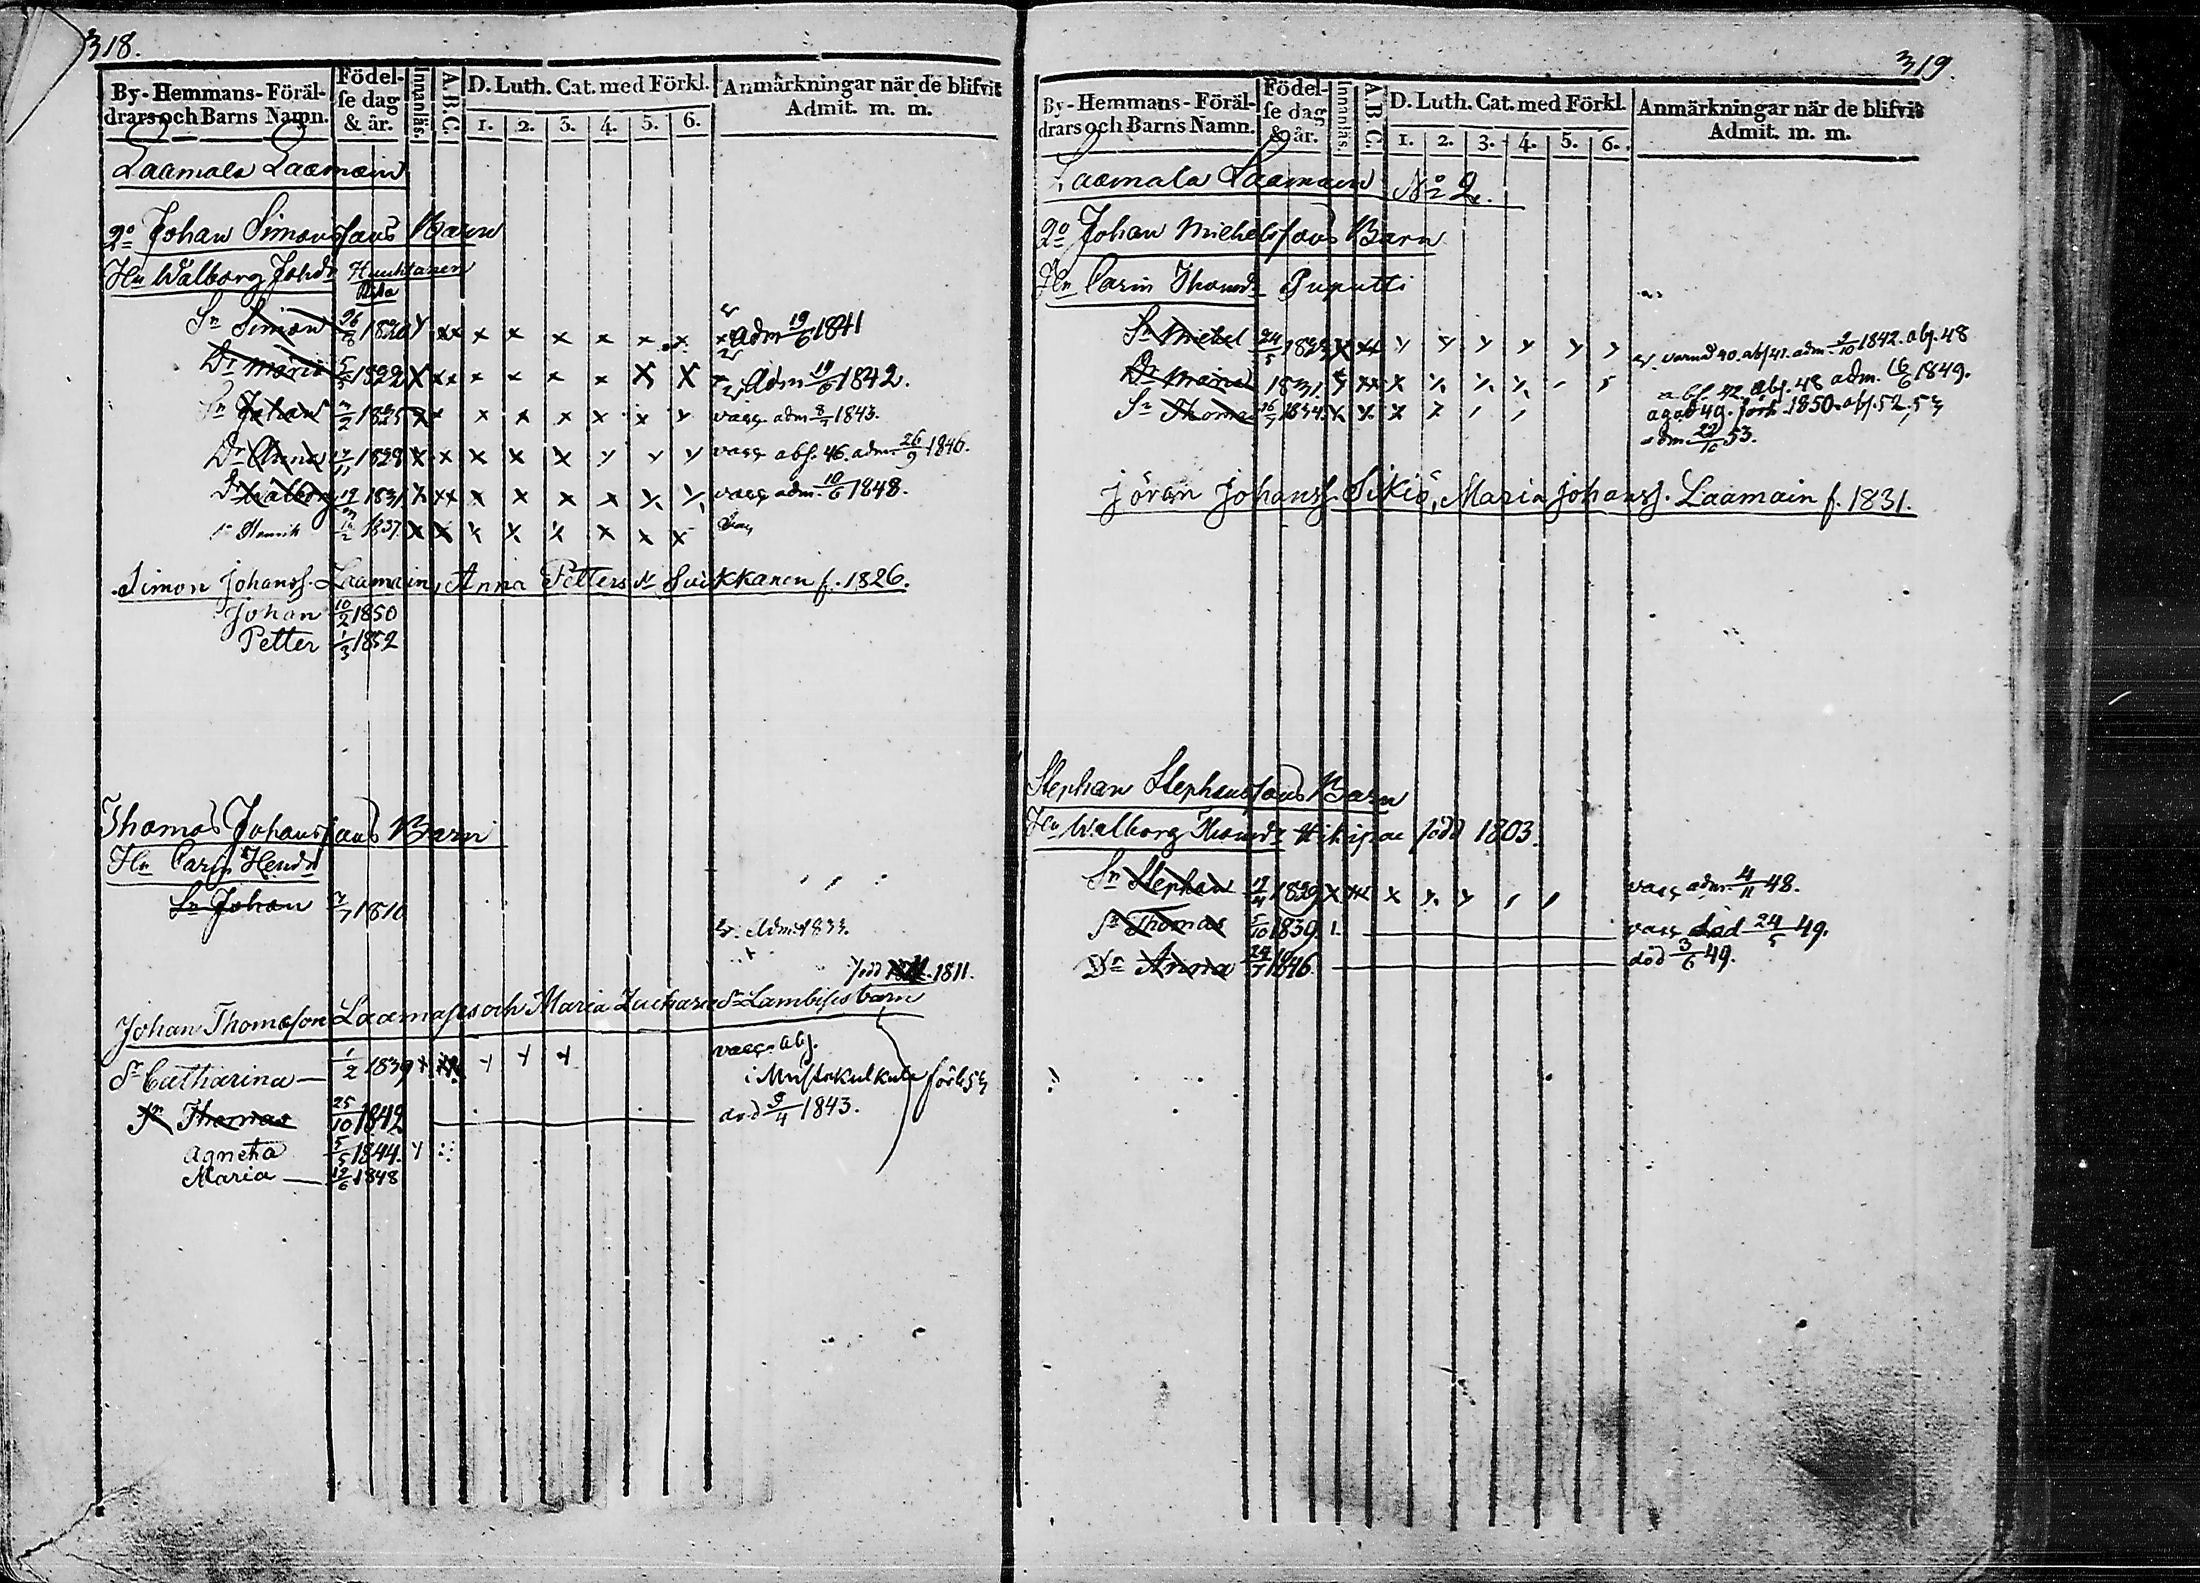 318.
By-Hemmans-Föräl-drars och Barns Namn. Födel-se dag & år. Innanläs. A.B.C. D. Luth. Cat. med Förkl. 1. 2. 3. 4. 5. 6. Anmärkningar när de blifvit Admit. m. m.
Laamala Laamain
2o Johan Simonssons Barn
Hu Walborg Johdr Huuhtanen
Sn Simon 26/8 1820 Y xx x x x x x x adm 19/6 1841
Dr Maria 5/5 1822 X xx x x x x X X Adm 19/6 1842.
Sn Johan 1825 x x x x x x x Y vacc. adm. 8/7 1843.
Dr Anna 1828 x x x x x y y y vacc abs. 46. adm. 26/9 1846.
Dr Walborg 1831 X xx x x x x vacc adm. 10/6 1848.
Sn Henrik 16/2 1837 x x x x x x x x vac
Simon Johanss. Laamain, Anna Pettersdr Suikkanen f. 1826.
Johan 10/2 1850
Petter 1/3 1852
Thomas Johanssons Barn
Hu Carin Hendr
Sn Johan 1810
v. Adm. 1833.
född 1811.
Johan Thomasson och Maria Zachariædr barn
Catharina 1/2 1839 vacc. abs.
i förh 53
Sn Thomas 25/10 1842 död 9/4 1843.
Agneta 5/5 1844.
Maria 12/6 1848
319.
By-Hemmans-Föräl-drars och Barns Namn. Födel-se dag & år. Innanläs A.B.C. D. Luth. Cat. med Förkl. 1. 2. 3. 4. 5. 6. Anmärkningar när de blifvit Admit. m. m.
Laamala Laamain No 2.
2o Johan Michelssons Barn
Hu Carin Thomdr Puputti
Sn Michel 24/5 v. varnad 40. abs 41. adm. 2/10 1842. abs. 48
Dr Maria 1831. abs. 42. abs. 48 adm. 16/6 1849.
Sn Thomas 16/7 1834. agad 49. förh. 1850. abs. 52, 53
adm 22/10 53.
Jöran Johanss. Sikiö, Maria Johanss. Laamain f. 1831.
Stephan Stephanssons Barn
Hu Walborg Thomdr född 1803.
Sn Stephan 1829 vacc adm. 4/11 48.
Sn Thomas 5/10 1839 1. vacc död 24/5 49.
Dr Anna 1846 död 3/6 49.